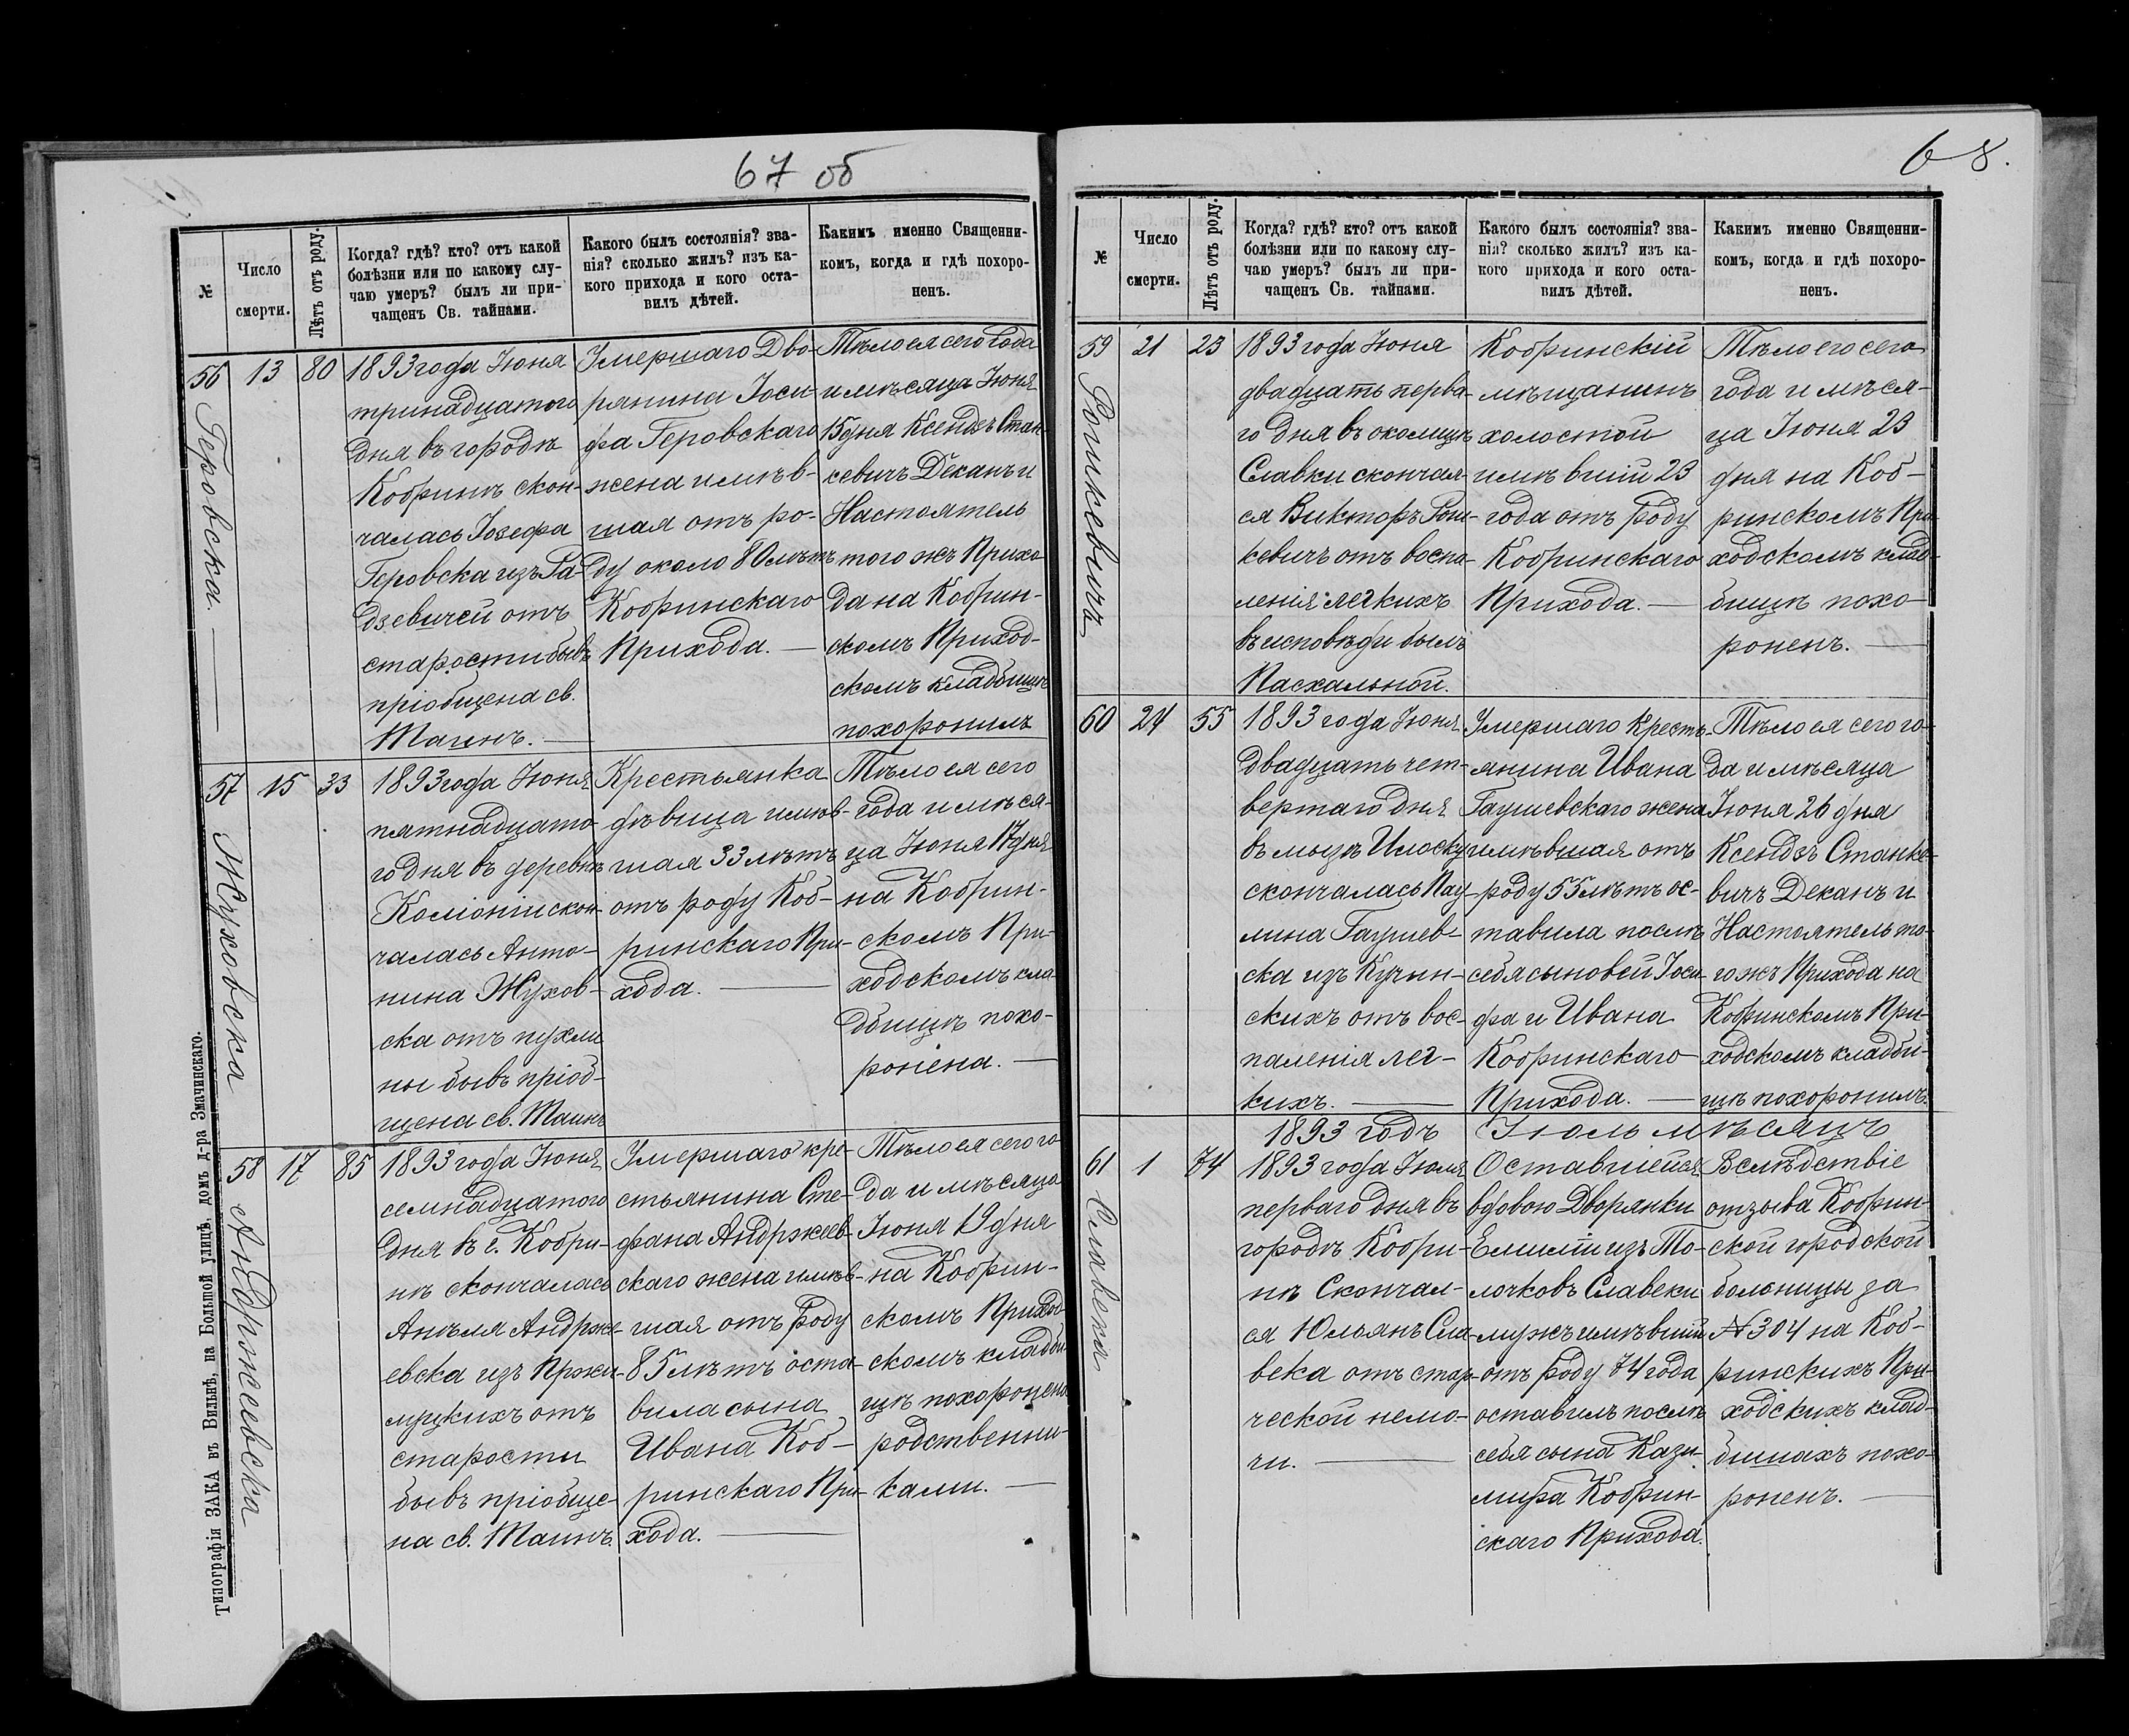 67 об
№
Число
смерти.
Лѣтъ отъ роду.
Когда? гдѣ? кто? отъ какой
болѣзни или по какому слу-
чаю умеръ? былъ ли при-
чащенъ Св. тайнами.
Какого былъ состоянія? зва-
нія? сколько жилъ? изъ ка-
кого прихода и кого оста-
вилъ дѣтей.
Какимъ именно Священни-
комъ, когда и гдѣ похоро-
ненъ.
56
Геровска.
13
80
1893 года Іюня
тринадцатого
дня въ городѣ
Кобринѣ скон-
чалась Іозефа
Геровска изъ Га-
дзевичей отъ
старости бывъ
пріобщена св.
Таинъ.
Умершаго Дво-
рянина Іоси-
фа Геровскаго
жена имѣв-
шая отъ ро-
ду около 80 лѣтъ
Кобринскаго
Прихода.
Тѣло ея сего года
и мѣсяца Іюня
15 дня Ксендзъ Стан-
кевичъ Деканъ и
Настоятель
того жъ Прихо-
да на Кобрин-
скомъ Приход-
скомъ кладбищѣ
похоронилъ
57
Жуховска
15
33
1893 года Іюня
пятнадцато-
го дня въ деревнѣ
Колюніи скон-
чалась Анто-
нина Жухов-
ска отъ пухли
ны бывъ пріоб-
щена св. Таинъ
Крестьянка
дѣвица имѣв-
шая 33 лѣтъ
отъ роду Коб-
ринскаго При-
хода.
Тѣло ея сего
года и мѣся-
ца Іюня 17 дня
на Кобрин-
скомъ При-
ходскомъ кла-
дбищѣ похо-
ронена.
58
Андржеевска
17
85
1893 года Іюня
семнадцатого
дня въ г. Кобри-
нѣ скончалась
Анѣля Андрже-
евска изъ Пржи-
муцкихъ отъ
старости
бывъ пріобще-
на св. Таинъ.
Умершаго кре-
стьянина Сте-
фана Андржеев-
скаго жена имѣв-
шая отъ роду
85 лѣтъ оста-
вила сына
Ивана Коб-
ринскаго При-
хода.
Тѣло ея сего го
да и мѣсяца
Іюня 19 дня
на Кобрин-
скомъ Приход-
скомъ кладби-
щѣ похоронена
родственни-
ками.
Типографія ЗАКА въ Вильнѣ, на Большой улицѣ, домъ д-ра Змачинскаго.
68.
№
Число
смерти.
Лѣтъ отъ роду.
Когда? гдѣ? кто? отъ какой
болѣзни или по какому слу-
чаю умеръ? былъ ли при-
чащенъ Св. тайнами.
Какого былъ состоянія? зва-
нія? сколько жилъ? изъ ка-
кого прихода и кого оста-
вилъ дѣтей.
Какимъ именно Священни-
комъ, когда и гдѣ похоро-
ненъ.
59
Рошкевичъ
21
23
1893 года Іюня
двадцать перва-
го дня въ околицѣ
Славки скончал-
ся Викторъ Рош-
кевичъ отъ воспа-
ленія легкихъ
въ исповѣди былъ
Пасхальной.
Кобринскій
мѣщанинъ
холостой
имѣвшій 23
года отъ роду
Кобринскаго
Прихода.
Тѣло его сего
года и мѣся-
ца Іюня 23
дня на Коб-
ринскомъ При-
ходскомъ клад-
бищѣ похо-
роненъ.
60
24
55
1893 года Іюня
двадцать чет-
вертаго дня
въ мызѣ Илоску
скончалась Пау-
лина Гаушев-
ска изъ Кучин-
скихъ отъ вос-
паленія лег-
кихъ.
Умершаго Кресть-
янина Ивана
Гаушевскаго жена
имѣвшая отъ
роду 55 лѣтъ ос-
тавила послѣ
себя сыновей Іоси-
фа и Ивана
Кобринскаго
Прихода.
Тѣло ея сего го-
да и мѣсяца
Іюня 26 дня
Ксендзъ Станке-
вичъ Деканъ и
Настоятель то-
го жъ Прихода на
Кобринскомъ При-
ходскомъ кладби-
щѣ похоронилъ.
1893 годъ Іюль мѣсяцъ
61
Славека
1
74
1893 года Іюля
перваго дня въ
городѣ Кобри-
нѣ Скончал-
ся Юльянъ Сла-
века отъ стар-
ческой немо-
чи.
Оставшейся
вдовою Дворянки
Емиліи изъ То-
лочковъ Славеки
мужъ имѣвшій
отъ роду 74 года
оставилъ послѣ
себя сына Кази-
мира Кобрин-
скаго Прихода.
Вслѣдствіе
отзыва Кобрин-
ской городской
больницы за
№ 304 на Коб-
ринскихъ При-
ходскихъ клад-
бишахъ похо-
роненъ.